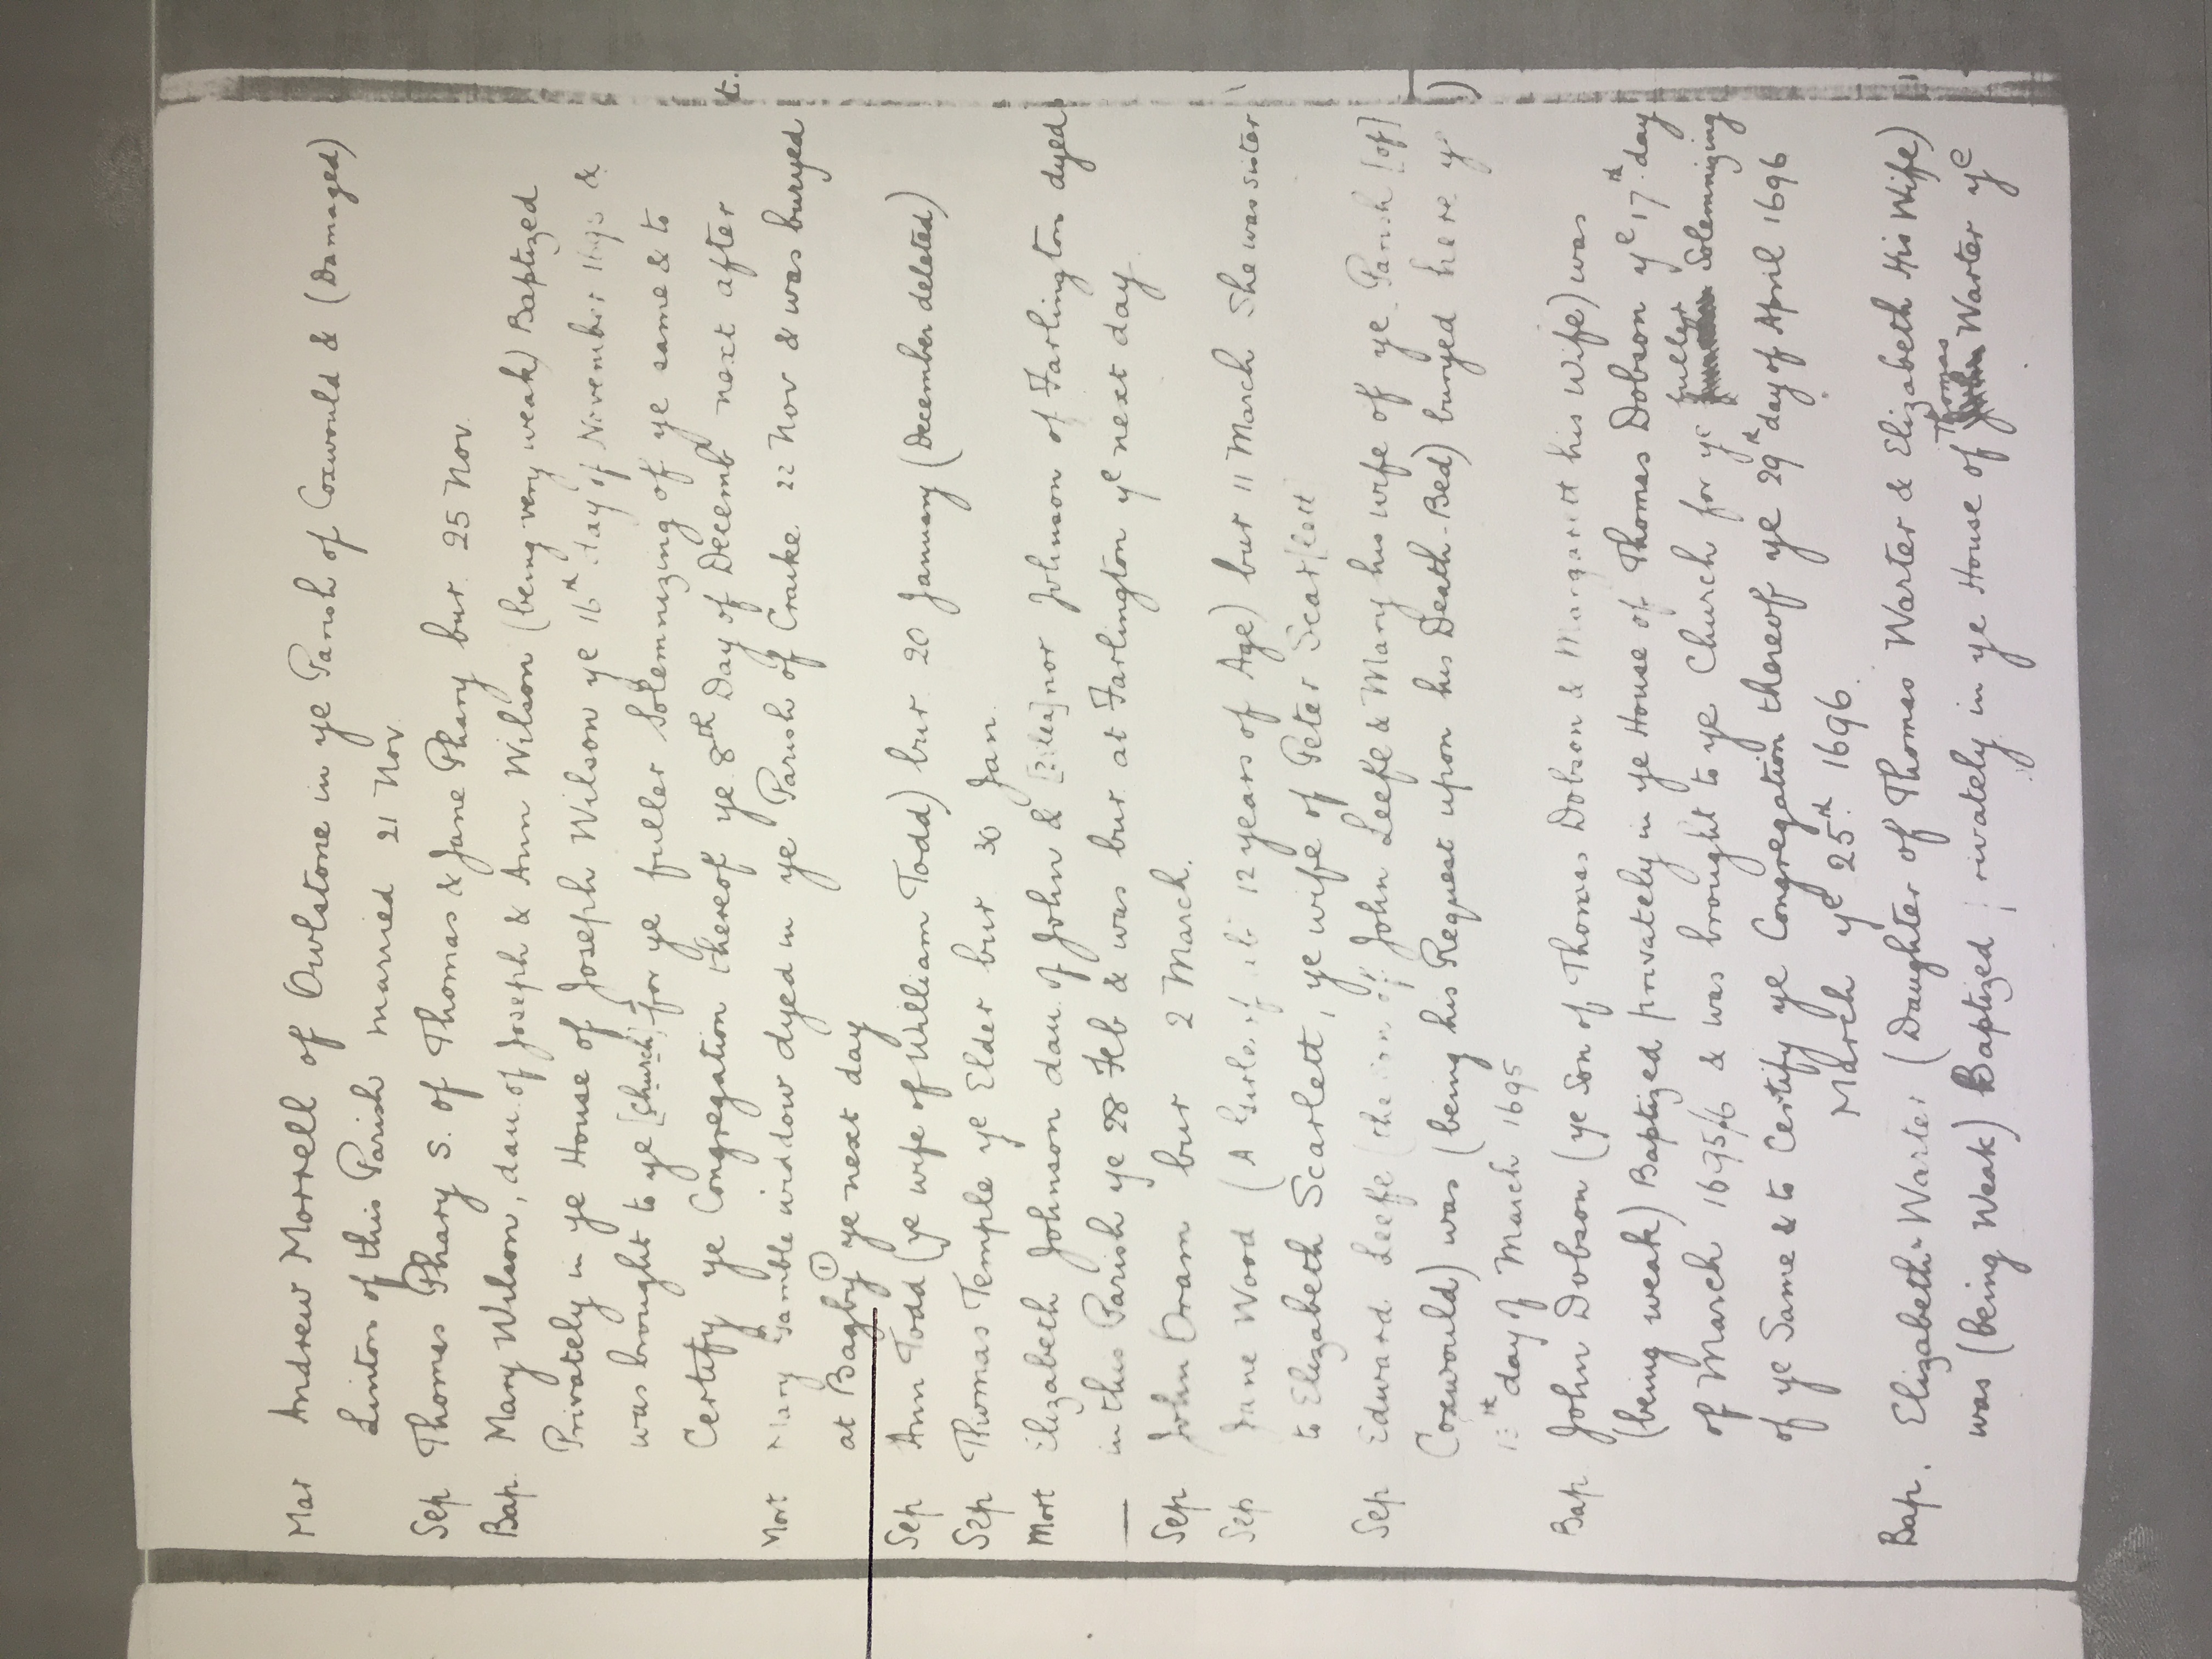 Mar Andrew Morrell of Owlstone in ye Parish of Coxwould & (Damaged)
Linton of this Parish married 21 Nov.
Sep Thomas Phary S. of Thomas & Jane Phary bur 25 Nov.
Bap. Mary Wilson, dau. of Joseph & Ann Wilson (being very weak) Baptized
Privately in ye House of Joseph Wilson ye 16th day of November &
was brought to ye [Church] for ye fuller Solemnizing of ye same & to
Certify ye Congregation thereof ye 8th Day of Decemb next after
Mort Mary Gamble widdow dyed in ye Parish of Crake 22 Nov & was buryed
at Bagby ① ye next day
Sep Ann Todd (ye wife of William Todd) bur 20 January (December deleted)
Sep Thomas Temple ye Elder bur 30 Jan.
Mort Elizabeth Johnson dau. of John & [?Elea]nor Johnson of Farlington dyed
— in this Parish ye 28 Feb & was bur at Farlington ye next day.
Sep John Oram bur 2 March.
Sep Jane Wood (A Girle of 12 years of Age) bur 11 March She was sister
to Elizabeth Scarlett, ye wife of Peter Scarlett
Sep Edward Leefe (the son of John Leefe & Mary his wife of ye Parish [of]
Coxwould) was (being his Request upon his Death-Bed) buryed here ye
day of March 1695
Bap John Dobson (ye Son of Thomas Dobson & Margarett his Wife) was
(being weak) Baptized privately in ye House of Thomas Dobson ye 17th day
of March 1695/6 & was brought to ye Church for ye fuller Solemnizing
of ye Same & to Certify ye Congregation thereof ye 29th day of April 1696
March ye 25th 1696.
Bap. Elizabeth Warter (Daughter of Thomas Warter & Elizabeth His Wife)
was (being Weak) Baptized privately in ye House of John Thomas Warter ye